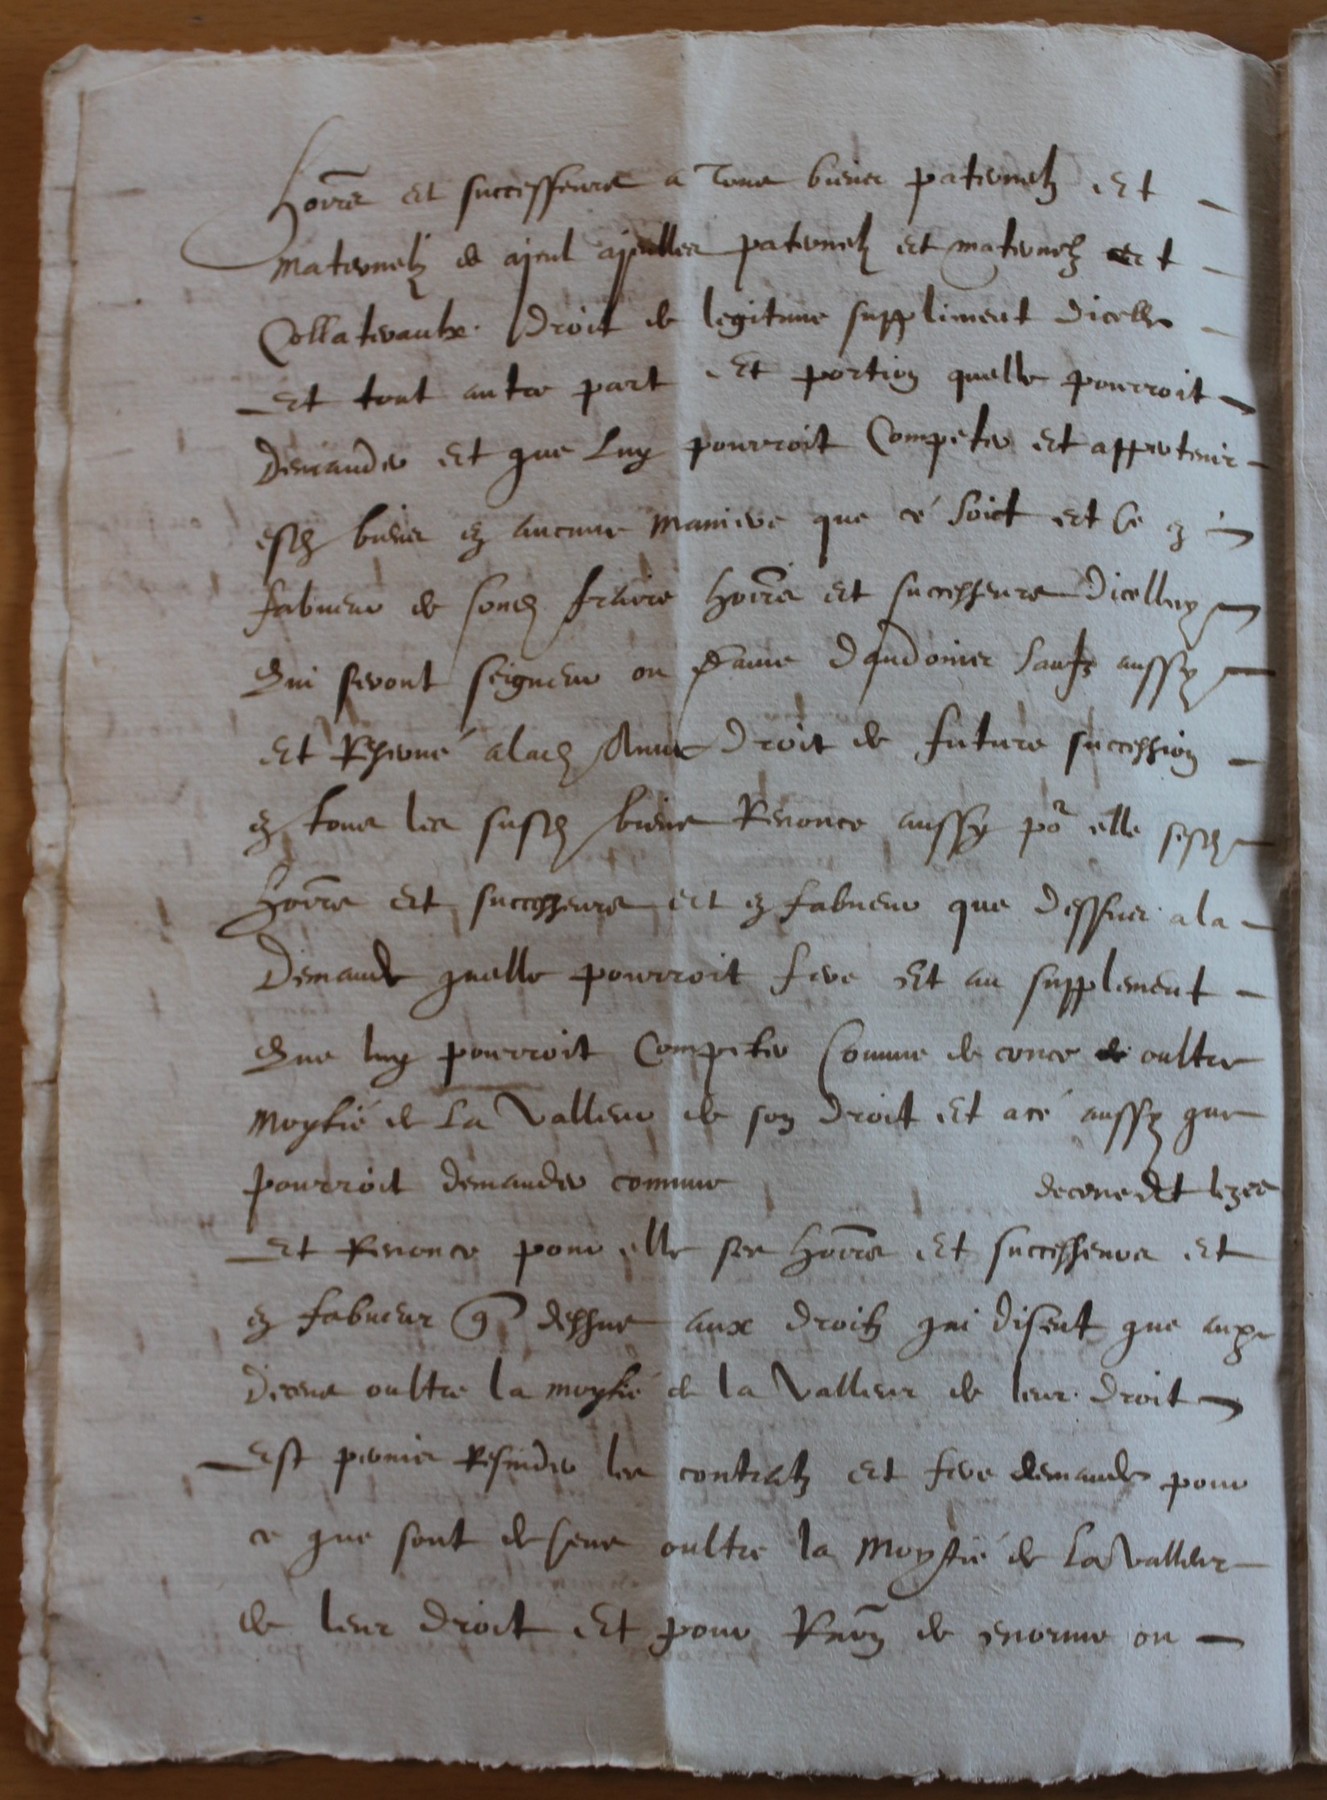 hoirs et successeurs a tous biens paternelz et
maternelz de ajeul ajeulles paternelz et maternelz et
Collateraulx. droit de legitime suppliment dicelle
Et tout autre part Et portion quelle pourroit
demander et que luy pourroit Competer et appertenir
esd biens en aucune maniere que cé soict et Ce en
fabveur de sond fraire hoirs et successeurs dicelluy
Qui seront seigneur ou dame dandoines sauf aussy
et Reserué alad Anne droit de future succession
en tous les susd biens Renonce aussy por elle sesd
hoirs et successeurs et en fabveur que dessus ala
demande quelle pourroit fere Et au supplement
Que luy pourroit Competer Comme deceue de oultre
moytié de La Valleur de son droit et acé aussy que
pourroit demander comme deceue et lezee
Et Renonce pour elle ses hoirs et successeurs et
en fabveur q dessus aux droitz qui disent que aux
deceus oultre la moytié de la Valleur de leur droit
Est permis Resinder les contratz et fere demande pour
ce que sont deseus oultre la moytié de La Valleur
de leur droit et pour Raison de enorme ou